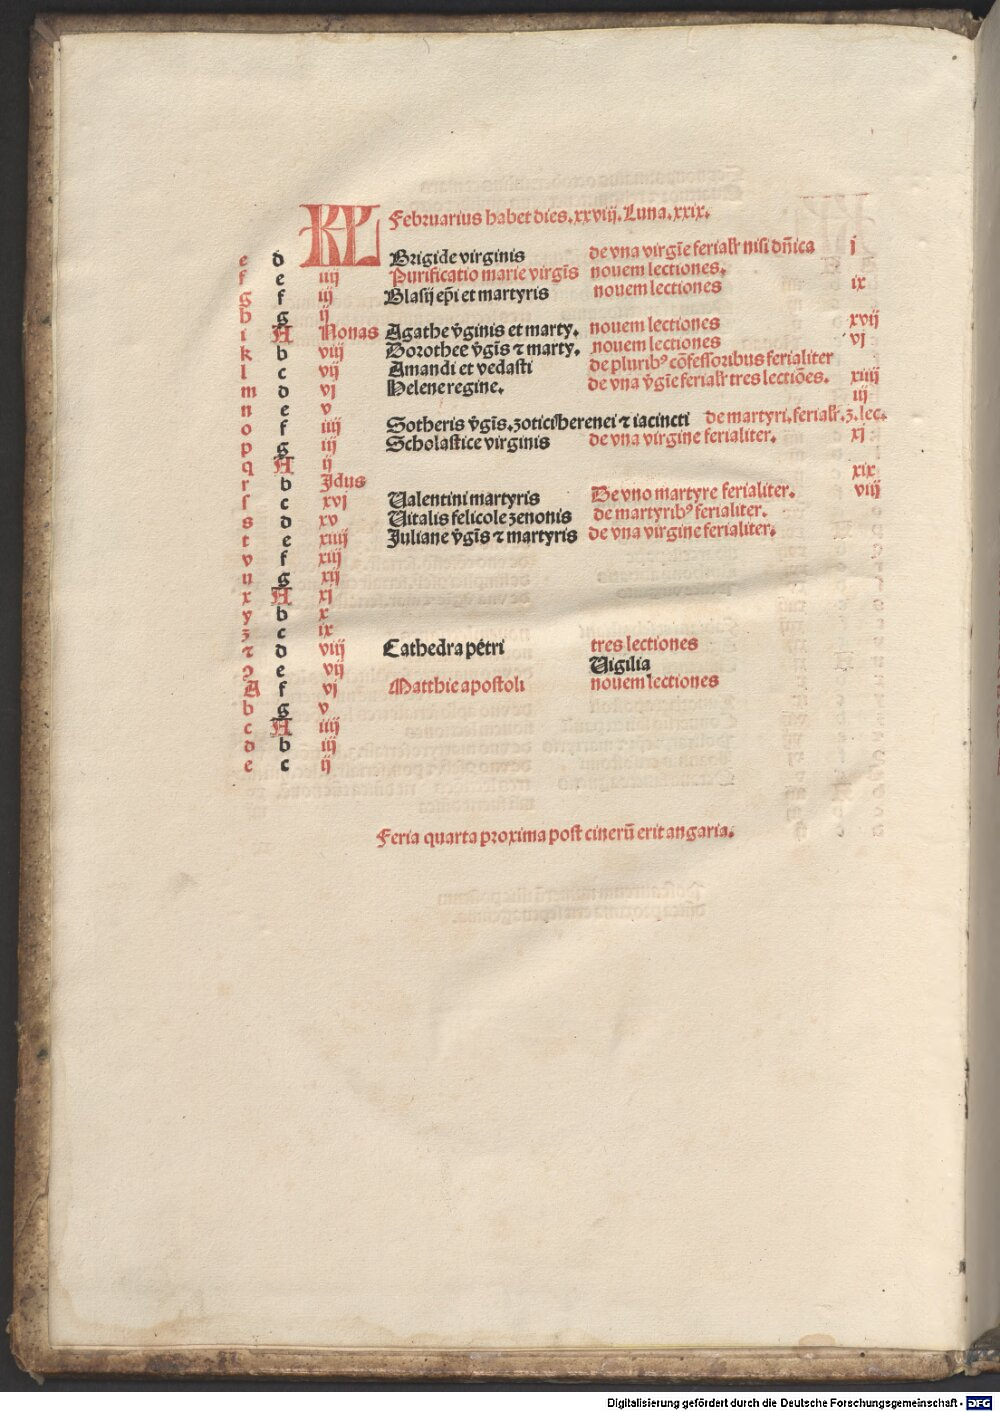 KL Februarius habet dies .xxviij. Luna .xxix.
e d Brigide virginis de vna virgīe ferialr̄ nisi dn̄ica j
f e iiij Purificatio marie virgīs nouem lectiones.
g f iij Blasij ep̄i et martyris nouem lectiones ix
h g ij
i A Nonas Agathe v̄ginis et marty. nouem lectiones xvij
k b viij Dorothee v̄gīs ⁊ marty. nouem lectiones vj
l c vij Amandi et vedasti de pluribꝰ cōfessoribus ferialiter
m d vj Helene regine. de vna v̄gīe ferialr̄ tres lectiōes. xiiij
n e v iij
o f iiij Sotheris v̄gīs. zotici herenei ⁊ iacincti de martyri. ferialr̄ .3. lec.
p g iij Scholastice virginis de vna virgine ferialiter. xj
q A ij
r b Jdus xix
ſ c xvj Valentini martyris De vno martyre ferialiter. viij
s d xv Vitalis felicole zenonis de martyribꝰ ferialiter.
t e xiiij Juliane v̄gīs ⁊ martyris de vna virgine ferialiter.
v f xiij
u g xij
x A xj
y b x
z c ix
⁊ d viij Cathedra petri tres lectiones
ꝯ e vij Vigilia
A f vj Matthie apostoli nouem lectiones
b g v
c A iiij
d b iij
e c ij
Feria quarta proxima post cinerū erit angaria.
Digitalisierung gefördert durch die Deutsche Forschungsgemeinschaft - DFG